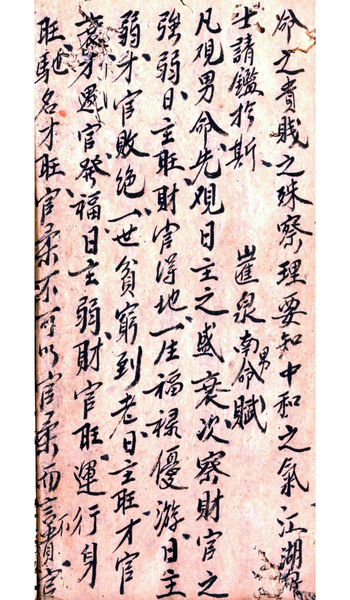 命之貴賤之殊察理要知中和之氣江湖
士請鑑於斯
崔泉南男命賦
凡覌男命先覌日主之盛衰次察財官之
強弱日主旺財官得地一生福祿優游日主
弱才官敗絕一世貧窮到老日主旺才官
衰才遇官發福日主弱財官旺運行身
旺馳名才旺官柔不可以官柔而言貴官